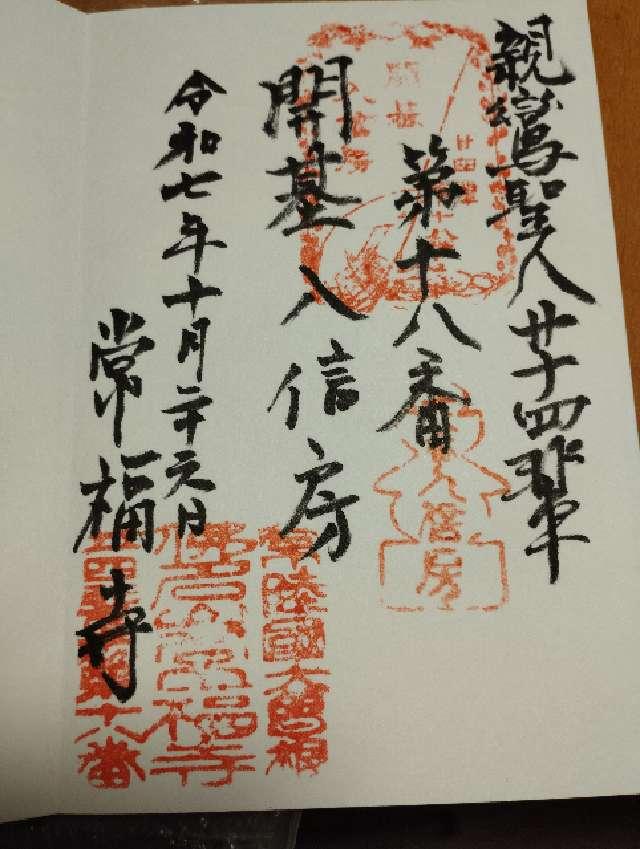 親鸞聖人廿四輩
第十八番
開基 八信房
令和七年十月二十六日
常福寺
廿四輩
入信房
常陸國大曽根
常福寺
二十四輩第十八番